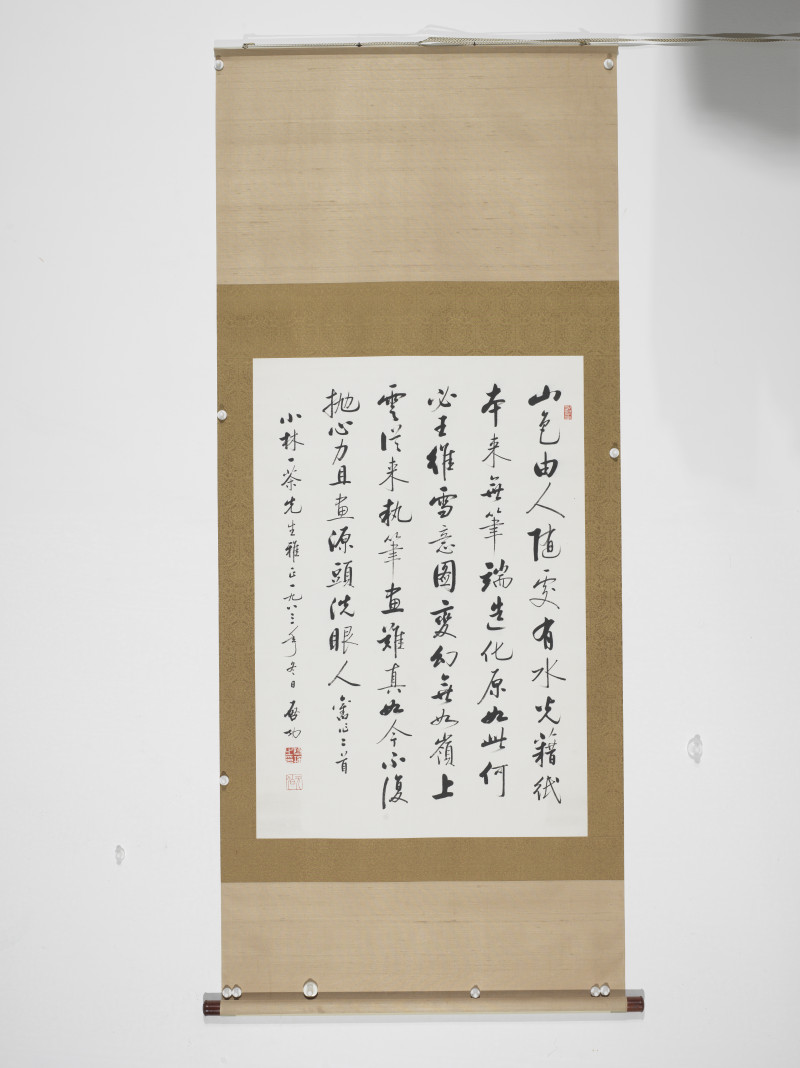 山色由人随處有水光藉紙
本来無筆端造化原如此何
必王維雪意圖變幻無如嶺上
雲從来執筆畫難真如今不復
抛心力且畫源頭洗眼人 舊作二首
小林一茶先生雅正一九八三年冬日 啓功